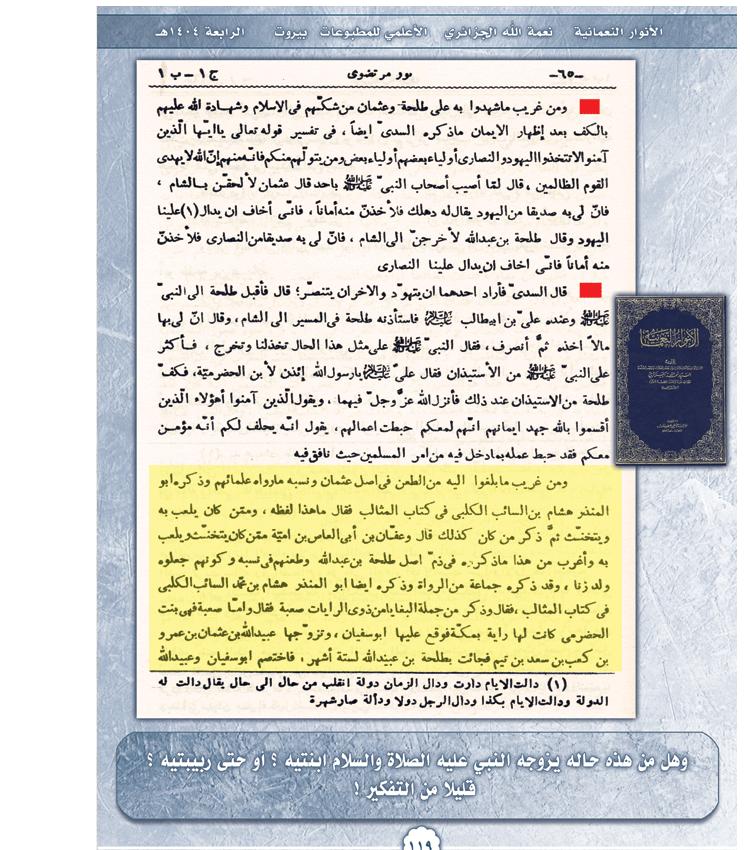 الأنوار النعمانية    نعمة الله الجزائري    الأعلمي للمطبوعات    بيروت    الرابعة ١٤٠٤هـ
ج١ــ ب ١ نور مرتضوى ــ٦٥ــ
ومن غريب ماشهدوا به على طلحة وعثمان من شكّهم فى الاسلام وشهادة الله عليهم
بالكف بعد إظهار الايمان ماذكره السدىّ ايضاً ، فى تفسير قوله تعالى ياايّها الّذين
آمنوا لاتتخذوا اليهود والنصارى أولياء بعضهم أولياء بعض ومن يتولّهم منكم فانّه منهم إنّ الله لايهدى
القوم الظالمين ، قال لمّا أصيب أصحاب النبىّ ﷺ باحد قال عثمان لألحقن بالشام ،
فانّ لى به صديقا من اليهود يقال له دهلك فلأخذن منه أماناً ، فانّى أخاف ان يدال(١)علينا
اليهود وقال طلحة بن عبدالله لأخرجنّ الى الشام ، فانّ لى به صديقا من النصارى فلأخذنّ
منه أماناً فانّى اخاف ان يدال علينا النصارى
قال السدىّ فأراد احدهما ان يتهوّد والاخران يتنصّر؛ قال فأقبل طلحة الى النبىّ
ﷺ وعنده علىّ بن ابيطالب عليه السلام فاستأذنه طلحة فى المسير الى الشام ، وقال انّ لى بها
مالاً اخذه ثمّ أنصرف ، فقال النبىّ ﷺ على مثل هذا الحال تخذلنا وتخرج ، فـأكثر
على النبىّ ﷺ من الأستيذان فقال علىّ عليه السلام يارسول الله إئذن لأبن الحضرميّة ، فكفّ
طلحة من الاستيذان عند ذلك فأنزل الله عزّ وجلّ فيهما ، ويقول الّذين آمنوا أهؤلاء الّذين
أقسموا بالله جهد ايمانهم انّهم لمعكم حبطت اعمالهم ، يقول انّه يحلف لكم أنّه مؤمـن
معكم فقد حبط عمله بمادخل فيه من امر المسلمين حيث نافق فيه
ومن غريب مابلغوا اليه من الطعن فى اصل عثمان ونسبه مارواه علمائهم وذكره ابو
المنذر هشام بن السائب الكلبى فى كتاب المثالب فقال ماهذا لفظه ، وممّن كان يلعب به
ويتخنّث ثمّ ذكر من كان كذلك قال وعفّان بن أبى العاص بن اميّة ممّن كان يتخنّث ويلعب
به وأغرب من هذا ماذكره فى ذمّ اصل طلحة بن عبدالله وطعنهم فى نسبه وكونهم جعلوه
ولد زنا ، وقد ذكره جماعة من الرواة وذكره ايضا ابو المنذر هشام بن محمّد السائب الكلبى
فى كتاب المثالب ،فقال وذكر من جملة البغايا من ذوى الرايات صعبة فقال وامّا صعبة فهى بنت
الحضرمى كانت لها راية بمكّة فوقع عليها ابوسفيان ، وتزوّجها عبيدالله بن عثمان بن عمرو
بن كعب بن سعد بن تيم فجائت بطلحة بن عبيدالله لستة أشهر ، فاختصم ابوسفيان وعبيدالله
(١) دالت الايام دارت ودال الزمان دولة انقلب من حال الى حال يقال دالت له
الدولة ودالت الايام بكذا ودال الرجل دولا ودألة صارشهرة
الأنوار النعمانية
وهل من هذه حاله يزوجه النبي عليه الصلاة والسلام ابنتيه ؟ او حتى ربيبتيه ؟
قليلا من التفكير !
١١٩